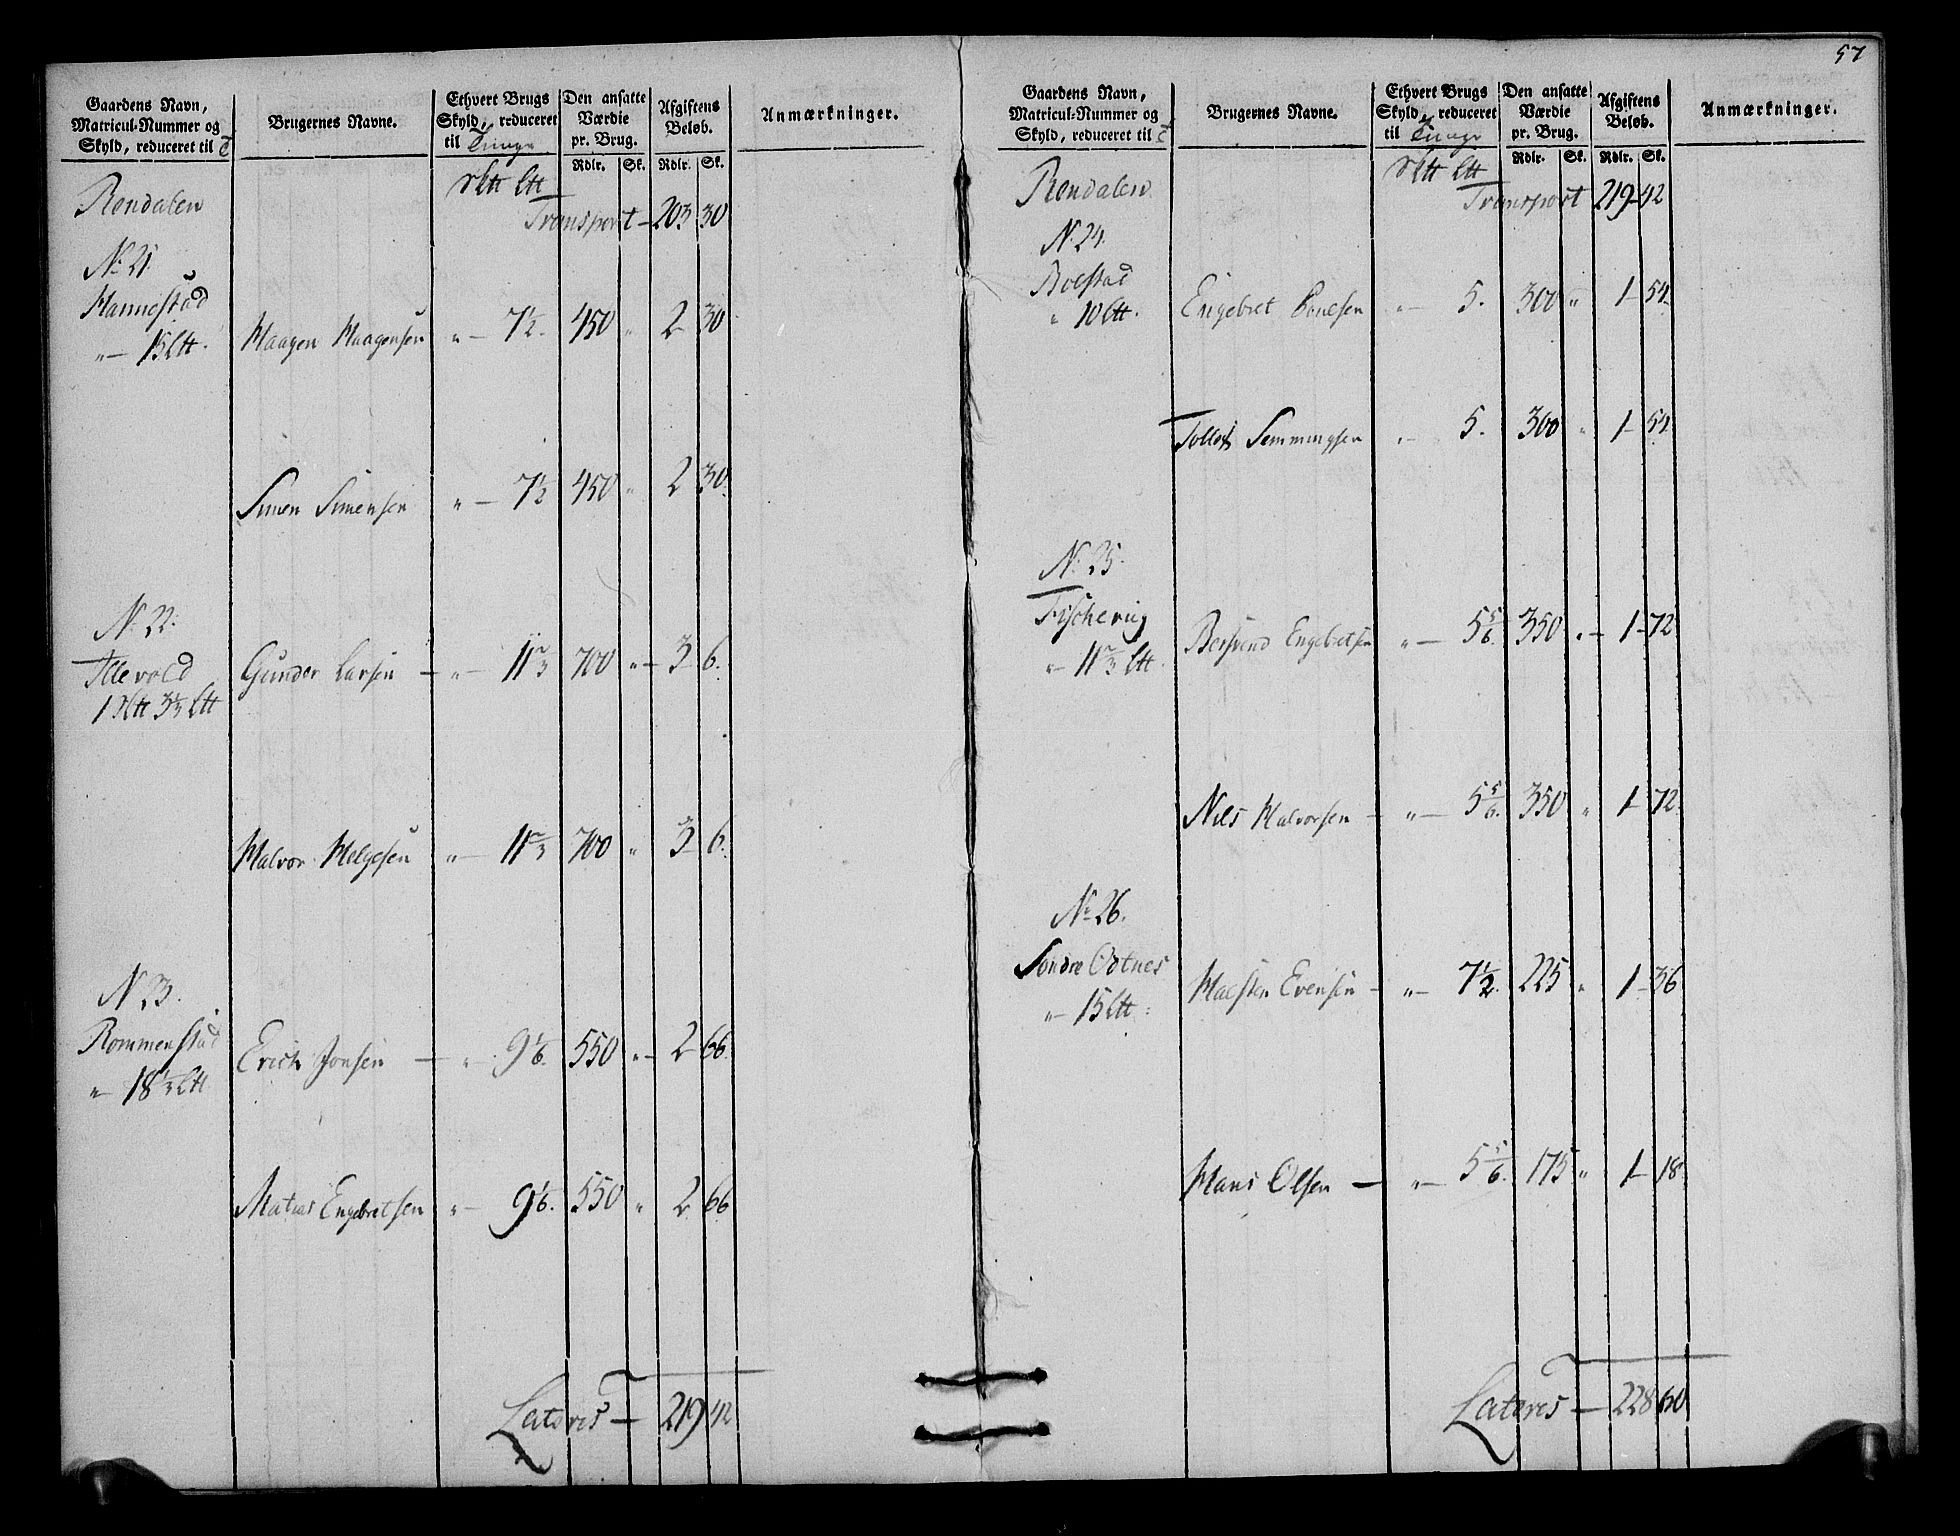 57
Gaardens Navn,
Matricul-Nummer og
Skyld, reduceret til T
Brugernes Navne.
Ethvert Brugs
Skyld, reduceret
til Tunge
Den ansatte
Værdie
pr. Brug.
Afgiftens
Beløb.
Anmærkninger.
Rdlr. Sk. Rdlr. Sk.
Rendalen
Transport - 203 30
No 21.
Hannestad
" - 15 Ltt.
Haagen Haagensen " - 7½. 450 " 2 30
Simen Simensen " - 7½ 450 " 2 30.
No 22.
Illevold
1 Sktt 3⅓ Ltt
Gunder Larsen - " - 11⅔ 700 " - 3 6.
Halvor Helgesen " - 11⅔ 700 " 3 6.
No 23.
Rommenstad
" - 18⅓ Ltt
Erich Jonsen - " - 9⅙. 550 " - 2 66.
Matias Engebretsen " - 9⅙. 550 " 2 66
Lateris - 219 42
Gaardens Navn,
Matricul-Nummer og
Skyld, reduceret til T
Brugernes Navne.
Ethvert Brugs
Skyld, reduceret
til Tunge
Den ansatte
Værdie
pr. Brug.
Afgiftens
Beløb.
Anmærkninger.
Rdlr. Sk. Rdlr. Sk.
Rendalen
Transport 219 - 42
No 24.
Boestad
" 10 Ltt.
Engebret Poulsen " - 5. 300 " 1 - 54.
Tollef Semmingsen " - 5. 300 " 1 - 54.
No 25.
Fischevig
" - 11⅔ Ltt.
Bersvend Engebretsen " - 5⅚. 350 " - 1 - 72
Nils Halvorsen - " - 5⅚. 350 " 1 - 72.
No 26.
Søndre Odtnes
" - 15 Ltt.
Halsten Evensen - " - 7½. 225 " 1 - 36
Hans Olsen - " - 5⅚. 175 " 1 - 18.
Lateris - 228 60